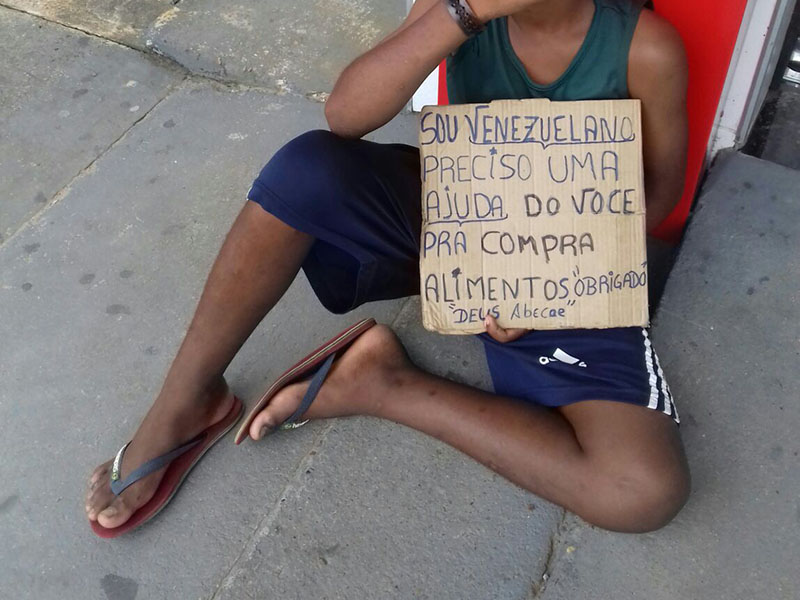 SOU VENEZUELANO
PRECISO UMA
AJUDA DO VOCE
PRA COMPRA
ALIMENTOS "OBRIGADO"
"DEUS Abecae"